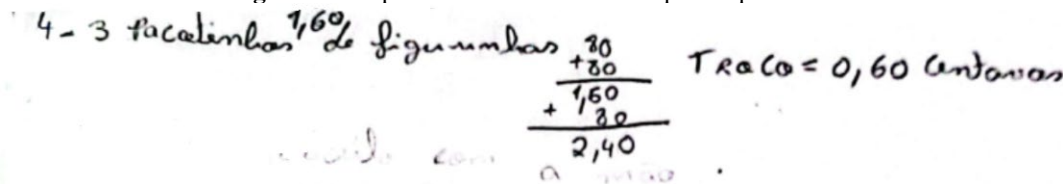 4- 3 pacatinhas 1,60 de figurinhas
80
+80
1,60
+ 80
2,40
TRoCo = 0,60 Centavos
com
a mão .